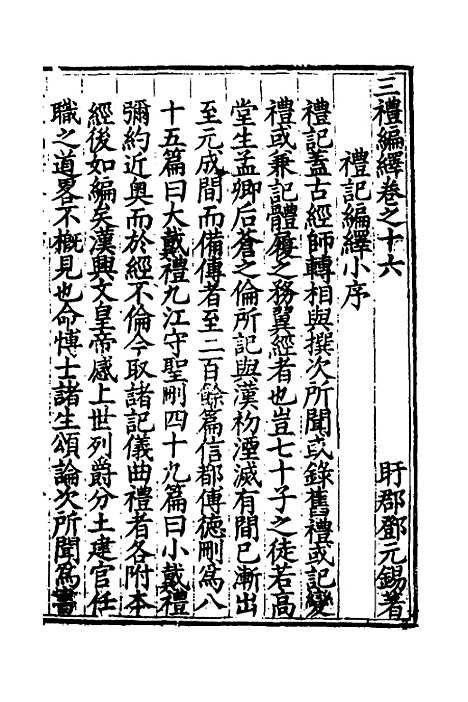 三禮編繹卷之十六　　　　盱郡鄧元錫著
禮記編繹小序
禮記蓋古經師轉相與撰次所聞或錄舊禮或記變
禮或兼記體履之務翼經者也豈七十子之徒若高
堂生孟卿后蒼之倫所記與漢初湮滅有間已漸出
至元成間而備傳者至二百餘篇信都傳德刪爲八
十五篇曰大戴禮九江守聖刪四十九篇曰小戴禮
彌約近奧而於經不倫今取諸記儀曲禮者各附本
經後如編矣漢興文皇帝感上世列爵分土建官任
職之道畧不概見也命博士諸生頌論次所聞爲書